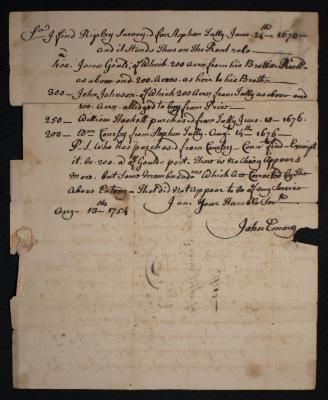 Sr. I find Ripley Survey'd for Stephen Tully June 24th 1673
and it Stands Thus on The Rent role
James Goult, of Which 200 Acres from his Brother
as above and 200 Acres as heir to his Brother
300 — John Johnson, of Which 200 Acres from Tully as above and
100 Acres alledged to buy from Price
250 — William Haskell purchased from Tully June 10 — 1676
200 — Wm from Stephen Tully Aug 14th 1676 —
P.S. Who has purchased from find Except
it be 200 ad of Goults part. There is Nothing appears
More but Some Memberand'ms Which Are Corrected by The
Above Entries — That did Not Appear to be of any Service
I am Your Humble Sert
Augt 13th 1754
John Emory